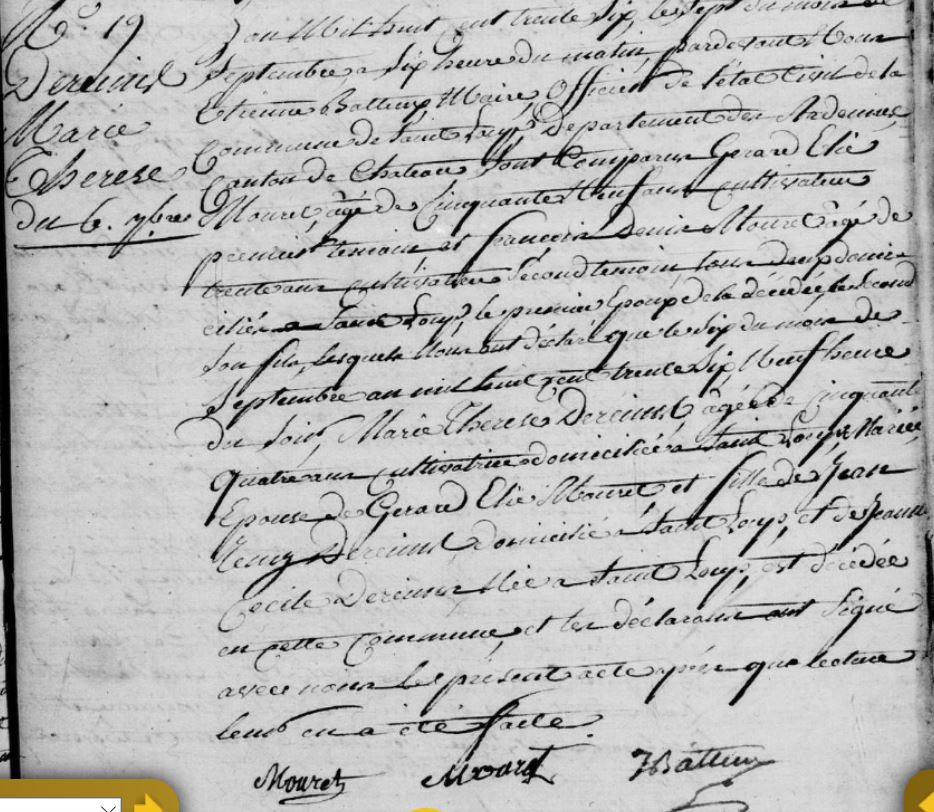 N.º 19
Dereims
Marie
Therese
du 6. 7bre
L'an Mil huit cent trente Six, le Sept du mois de
Septembre a Six heure du matin, pardevant Nous
Etienne Batteux Maire, Officier de l'état Civil de la
Commune de Saint Loup, Departement des Ardennes,
Canton de Chateau Sont Comparus Gerard Elie
Mouret, âgé de Cinquante Neuf ans cultivateur
premier temoin et francois Denis Mouret âgé de
trente ans cultivateur Second temoin, tous deux domi-
ciliés a Saint Loup, le premier Epoux de la décédée, le Second
Son fils, lesquels Nous ont déclaré que le Six du mois de
Septembre an mil huit cent trente Six, Neuf heure
du Soir, Marie Therese Dereims âgée de Cinquante
quatre ans cultivatrice domiciliée a Saint Loup, Mariée
Epouse de Gerard Elie Mouret et fille de Jean
Remy Dereims domicilié a Saint Loup, et de Jeanne
Cecile Dereims Née a Saint Loup, est décédée
en cette Commune, et les déclarans ont Signé
avec nous le présent acte après que lecture
leur en a été faite.
Mouret Mouret Batteux